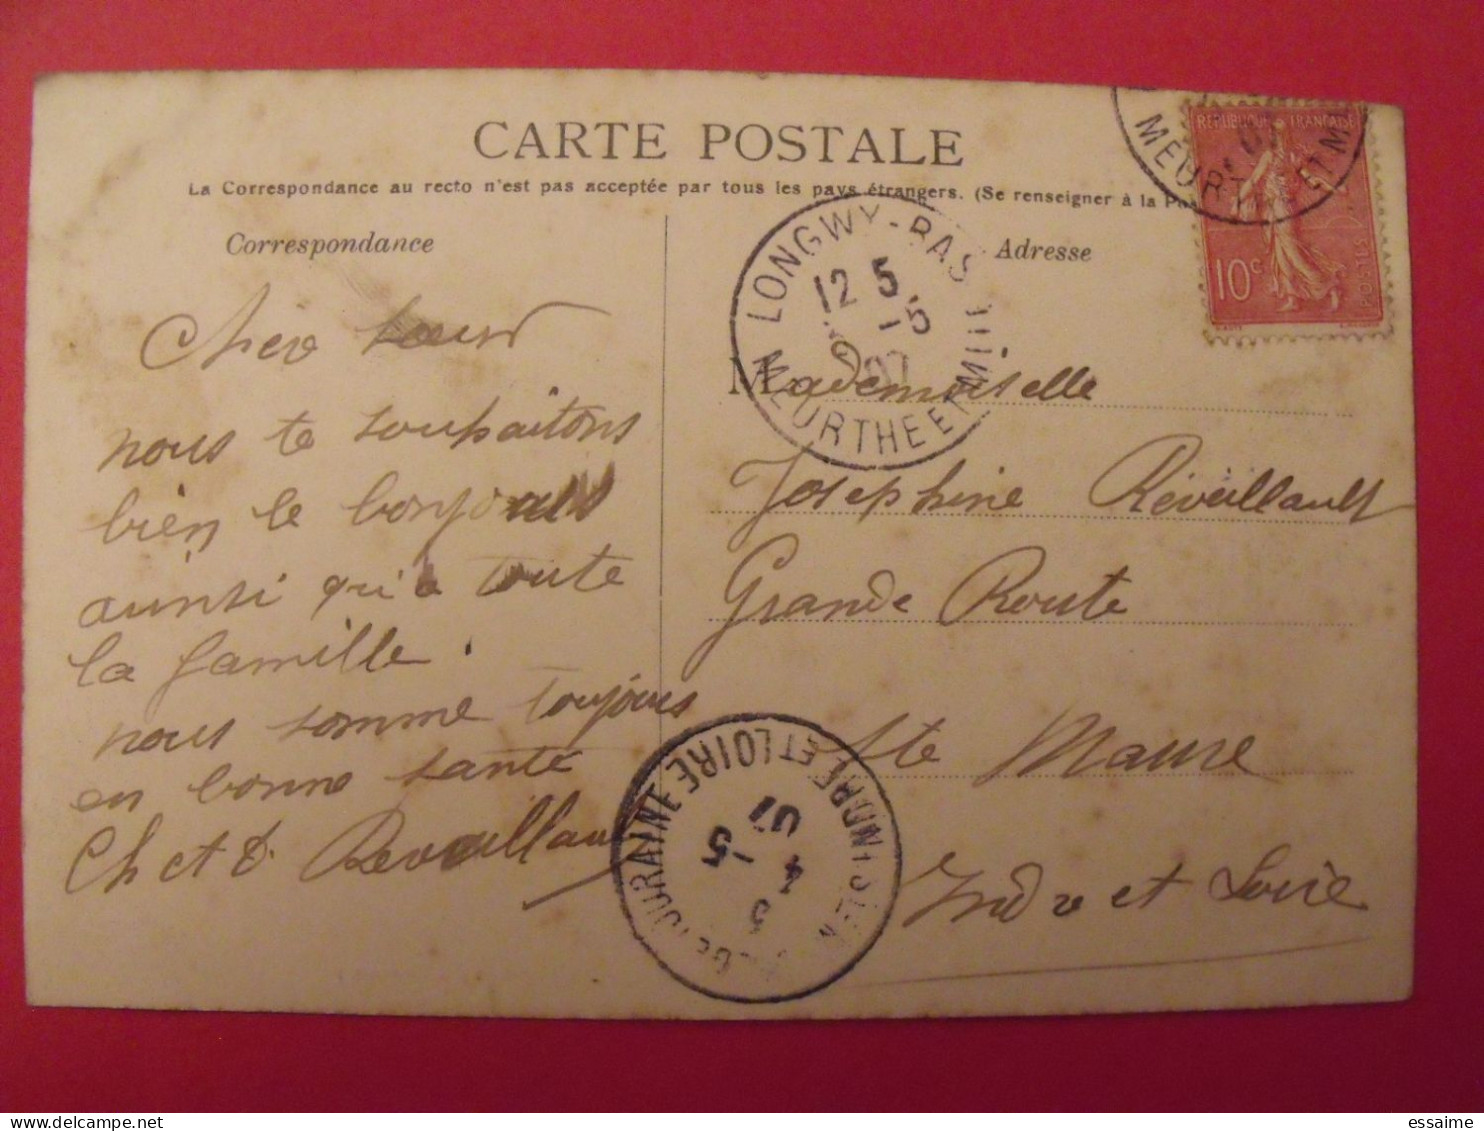 CARTE POSTALE
La Correspondance au recto n'est pas acceptée par tous les pays étrangers. (Se renseigner à la
Correspondance
Adresse
Chère Sœur
nous te souhaitons
bien le bonjours
ainsi qu'a toute
la famille.
nous somme toujours
en bonne santé
Ch et D. Reveillault
Mademoiselle
Josephine Réveillault
Grande Route
Ste Maure
Indre et Loire
REPUBLIQUE FRANÇAISE
10c
POSTES
MEURTHE ET M
LONGWY-BAS
12 5
-5
07
MEURTHE ET M
TOURAINE
INDRE ET LOIRE
5
4 -5
07
delcampe.net
essaime